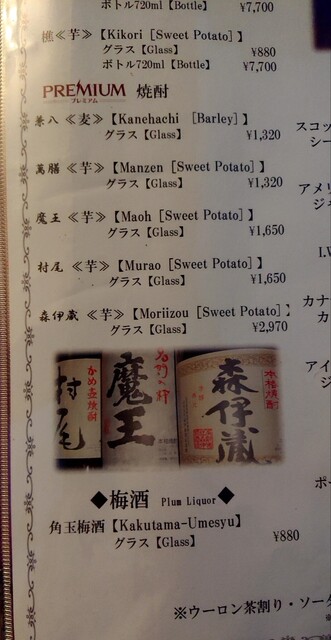 ボトル720ml【Bottle】 ¥7,700
樵≪芋≫【Kikori [Sweet Potato]】
グラス【Glass】 ¥880
ボトル720ml【Bottle】 ¥7,700
PREMIUM 焼酎
プレミアム
兼八 ≪麦≫【Kanehachi [Barley]】
グラス【Glass】 ¥1,320
萬膳 ≪芋≫【Manzen [Sweet Potato]】
グラス【Glass】 ¥1,320
魔王 ≪芋≫【Maoh [Sweet Potato]】
グラス【Glass】 ¥1,650
村尾 ≪芋≫【Murao [Sweet Potato]】
グラス【Glass】 ¥1,650
森伊蔵 ≪芋≫【Moriizou [Sweet Potato]】
グラス【Glass】 ¥2,970
村尾
かめ壺焼酎
魔王
名門の粋
森伊蔵
本格焼酎
◆梅酒 Plum Liquor◆
角玉梅酒【Kakutama-Umesyu】
グラス【Glass】 ¥880
※ウーロン茶割り・ソーダ
スコッ
シー
アメリ
ジャ
I.W
カナ
カ
アイ
ポー